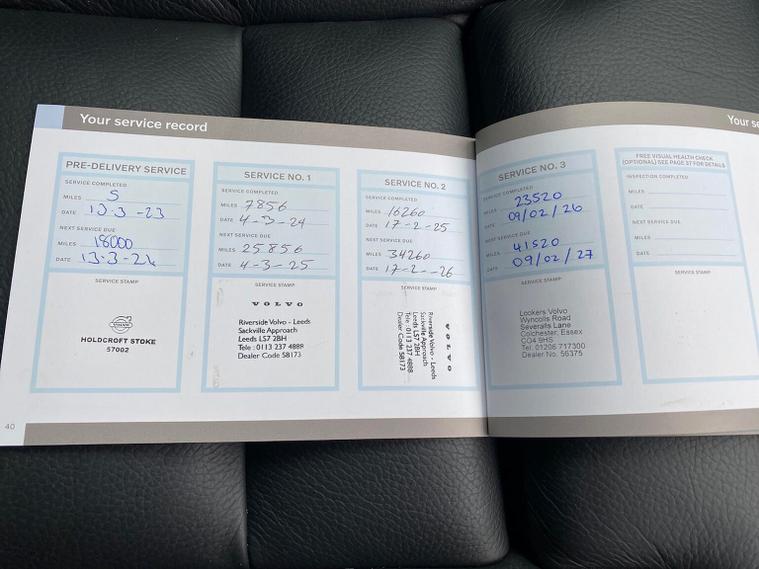 Your service record
PRE-DELIVERY SERVICE
SERVICE COMPLETED
MILES 5
DATE 13-3-23
NEXT SERVICE DUE
MILES 18000
DATE 13-3-24
SERVICE STAMP
HOLDCROFT STOKE
57002
SERVICE NO. 1
SERVICE COMPLETED
MILES 7856
DATE 4-3-24
NEXT SERVICE DUE
MILES 25856
DATE 4-3-25
SERVICE STAMP
VOLVO
Riverside Volvo - Leeds
Sackville Approach
Leeds LS7 2BH
Tele : 0113 237 4888
Dealer Code 58173
SERVICE NO. 2
SERVICE COMPLETED
MILES 16260
DATE 17-2-25
NEXT SERVICE DUE
MILES 34260
DATE 17-2-26
SERVICE STAMP
VOLVO
Riverside Volvo - Leeds
Sackville Approach
Leeds LS7 2BH
Tele : 0113 237 4888
Dealer Code 58173
40
Your se
SERVICE NO. 3
SERVICE COMPLETED
MILES 23520
DATE 09/02/26
NEXT SERVICE DUE
MILES 41520
DATE 09/02/27
SERVICE STAMP
Lookers Volvo
Wyncolls Road
Severalls Lane
Colchester, Essex
CO4 9HS
Tel. 01206 717300
Dealer No. 56375
FREE VISUAL HEALTH CHECK
(OPTIONAL) SEE PAGE 37 FOR DETAILS
INSPECTION COMPLETED
MILES
DATE
NEXT SERVICE DUE
MILES
DATE
SERVICE STAMP